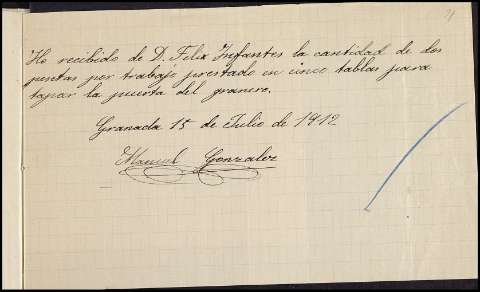 He recibido de D. Felix Infantes la cantidad de dos
pesetas por trabajo prestado en cinco tablas para
tapar la puerta del granero.
Granada 15 de Julio de 1912
Manuel Gonzalez